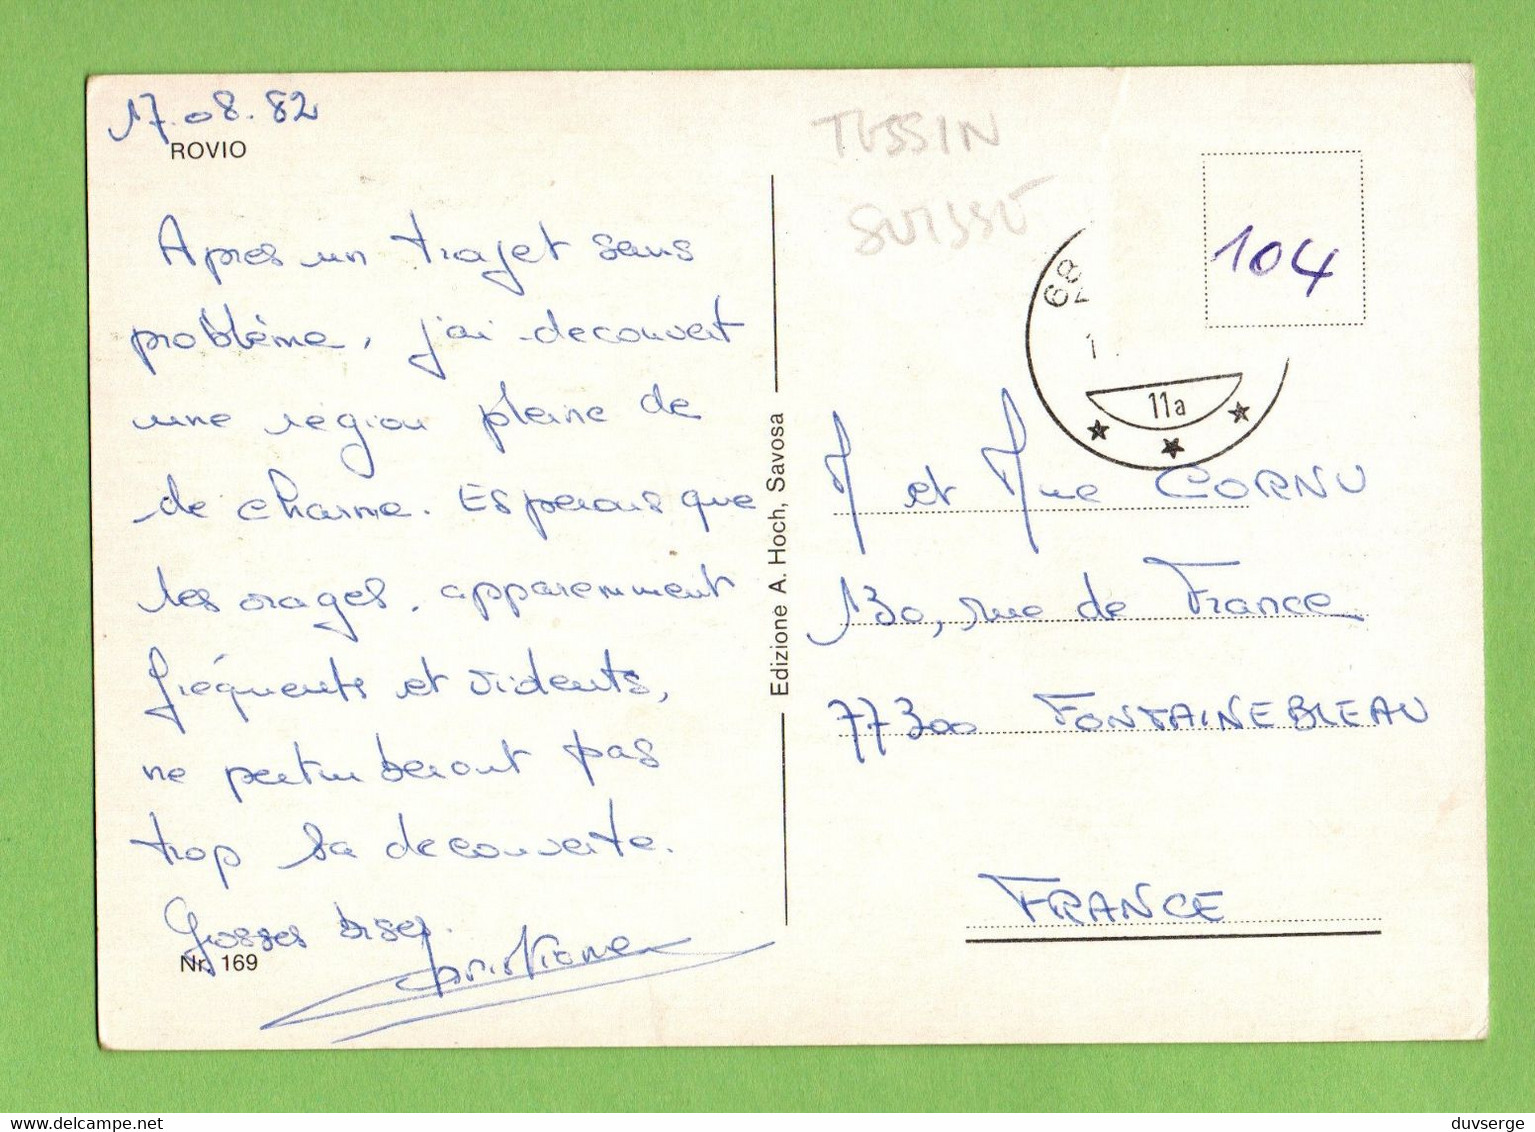 17.08.82
ROVIO
Après un trajet sans
problème, j'ai decouvert
une region pleine de
de charme. Esperons que
les orages, apparemment
fréquents et violents,
ne perturberont pas
trop la decouverte.
Grosses bises.
Christiane
Nr. 169
Edizione A. Hoch, Savosa
TESSIN
SUISSE
104
68
1
11a
M et Mme CORNU
130, rue de France
77300 FONTAINEBLEAU
FRANCE
www.delcampe.net
duvserge